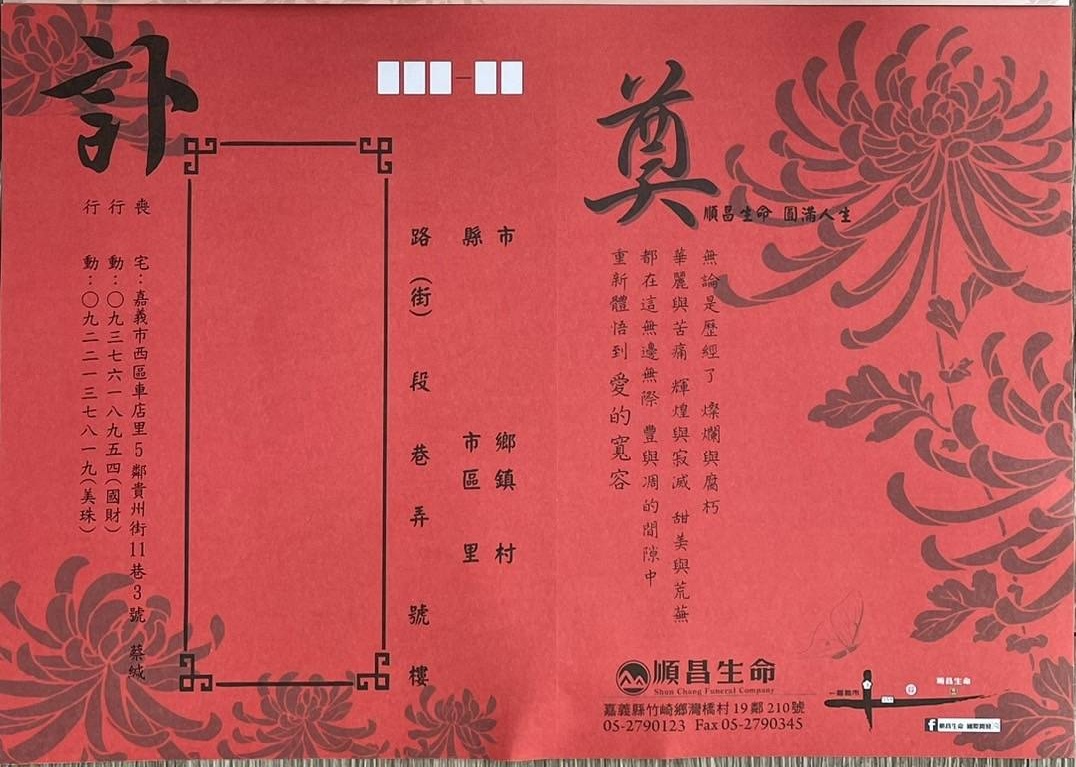 訃
喪　宅：嘉義市西區車店里5鄰貴州街11巷3號　蔡緘
行　動：〇九三七六一八九五四(國財)
行　動：〇九二二一三七八一九(美珠)
市　鄉鎮　村
縣　市區　里
路(街)　段　巷　弄　號　樓
奠
順昌生命 圓滿人生
無論是歷經了　燦爛與腐朽
華麗與苦痛　輝煌與寂滅　甜美與荒蕪
都在這無邊無際　豐與凋的間隙中
重新體悟到 愛的寬容
順昌生命
Shun Chang Funeral Company
嘉義縣竹崎鄉灣橋村19鄰210號
05-2790123 Fax 05-2790345
順昌生命